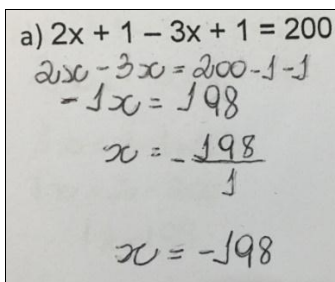 a) 2x + 1 – 3x + 1 = 200
2x - 3x = 200 - 1 - 1
- 1x = 198
x = - 198
1
x = - 198